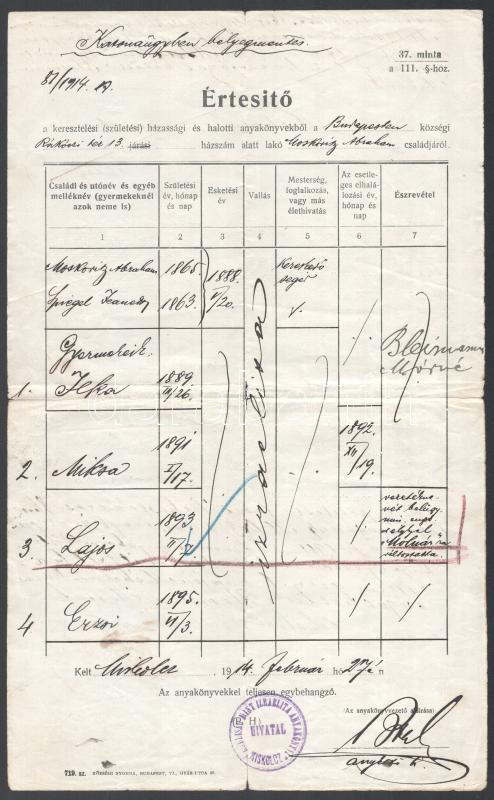 Katonaügyben bélyegmentes.
37. minta
a 111. §-hoz.
87/1914.
Értesitő
a keresztelési (születési) házassági és halotti anyakönyvekből a Budapesten községi
Rákóczi tér 13. járási házszám alatt lakó Moskovitz Abraham családjáról.
Családi és utónév és egyéb melléknév (gyermekeknél azok neme is)
Születési év, hónap és nap
Esketési év
Vallás
Mesterség, foglalkozás, vagy más élethivatás
Az esetleges elhalálozási év, hónap és nap
Észrevétel
1 2 3 4 5 6 7
Moskovitz Abraham 1865. 1888. Kereskedő
Spiegel 1863. V/20. segéd
izraelita
Gyermekeik:
1. Ilka 1889. III/26.
Bleimann Mórné
2. Miksa 1891 I/17. 1892. XII/19.
3. Lajos 1893.
vezetékne-
vét belügy-
min. eng.
Molnár"ra
változtatta
4 Erzsi 1895. VI/3.
Kelt Miskolcz 1914 február hó 27én
Az anyakönyvekkel teljesen egybehangzó.
(P. H.)
HIVATAL
MISKOLCZ
Az anyakönyvvezető aláirása:
719. sz. KÖZSÉGI NYOMDA, BUDAPEST, VI.,